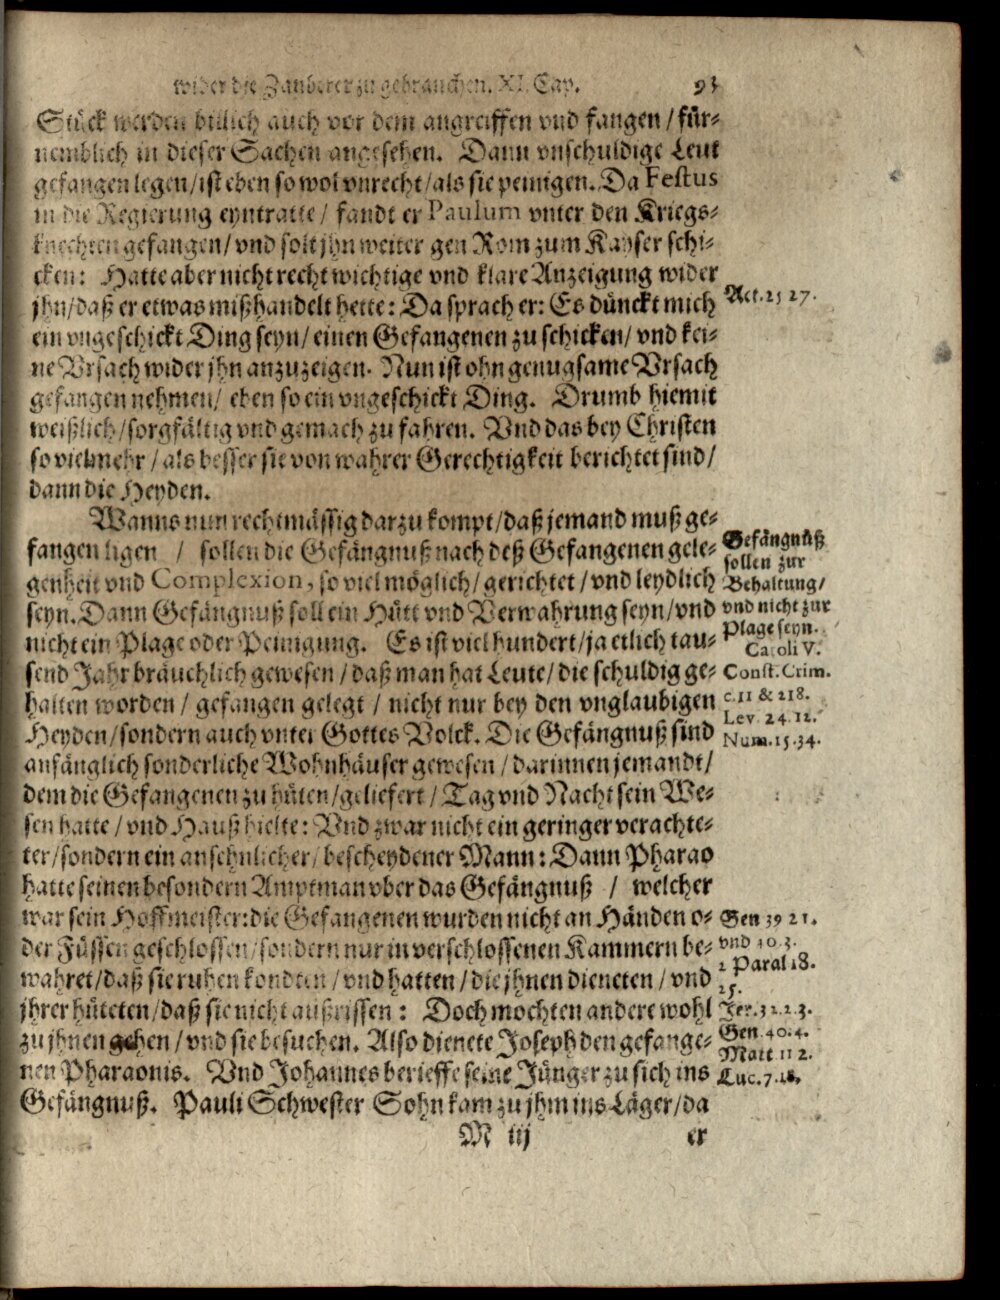 wider die Zauberer zu gebrauchen. XI. Cap. 93
Stück werden billich auch vor dem angreiffen vnd fangen / für-
nemblich in dieser Sachen angesehen. Dann vnschuldige Leut
gefangen legen / ist eben so wol vnrecht / als sie peinigen. Da Festus
in die Regierung eyntratte / fandt er Paulum vnter den Kriegs-
knechten gefangen / vnd solt jhn weiter gen Rom zum Kayser schi-
cken: Hatte aber nicht recht wichtige vnd klare Anzeigung wider
jhn / daß er etwas mißhandelt hette: Da sprach er: Es dünckt mich
Act. 25 27.
ein vngeschickt Ding seyn / einen Gefangenen zu schicken / vnd kei-
ne Vrsach wider jhn anzuzeigen. Nun ist ohn genugsame Vrsach
gefangen nehmen / eben so ein vngeschickt Ding. Drumb hiemit
weißlich / sorgfältig vnd gemach zu fahren. Vnd das bey Christen
so viel mehr / als besser sie von wahrer Gerechtigkeit berichtet sind /
dann die Heyden.
Wanns nun rechtmässig darzu kompt / daß jemand muß ge-
fangen ligen / sollen die Gefängnuß nach deß Gefangenen gele-
genheit vnd Complexion, so viel möglich / gerichtet / vnd leydlich
seyn. Dann Gefängnuß soll ein Hütt vnd Verwahrung seyn / vnd
nicht ein Plage oder Peinigung. Es ist viel hundert / ja etlich tau-
send Jahr bräuchlich gewesen / daß man hat Leute / die schuldig ge-
halten worden / gefangen gelegt / nicht nur bey den vnglaubigen
Heyden / sondern auch vnter Gottes Volck. Die Gefängnuß sind
Gefängnüß
sollen zur
Behaltung /
vnd nicht zur
Plage seyn.
Caroli V.
Const. Crim.
c. 11 & 218.
Lev. 24. 12.
Num. 15. 34.
anfänglich sonderliche Wohnhäuser gewesen / darinnen jemandt /
dem die Gefangenen zu hüten / geliefert / Tag vnd Nacht sein We-
sen hatte / vnd Hauß hielte: Vnd zwar nicht ein geringer verachte-
ter / sondern ein ansehnlicher / bescheydener Mann: Dann Pharao
hatte seinen besondern Amptman vber das Gefängnuß / welcher
war sein Hoffmeister: die Gefangenen wurden nicht an Händen o-
der Füssen geschlossen / sondern nur in verschlossenen Kammern be-
wahret / daß sie ruhen kondten / vnd hatten / die jhnen dieneten / vnd
jhrer hüteten / daß sie nicht außrissen: Doch mochten andere wohl
zu jhnen gehen / vnd sie besuchen. Also dienete Joseph den gefange-
nen Pharaonis. Vnd Johannes berieffe seine Jünger zu sich ins
Gefängnuß. Pauli Schwester Sohn kam zu jhm ins Läger / da
Gen 39 21.
vnd 40. 3.
2 Paral 18.
25.
Jer. 32. 2. 3.
Gen. 40. 4.
Matt 11 2.
Luc. 7. 18.
M iij er